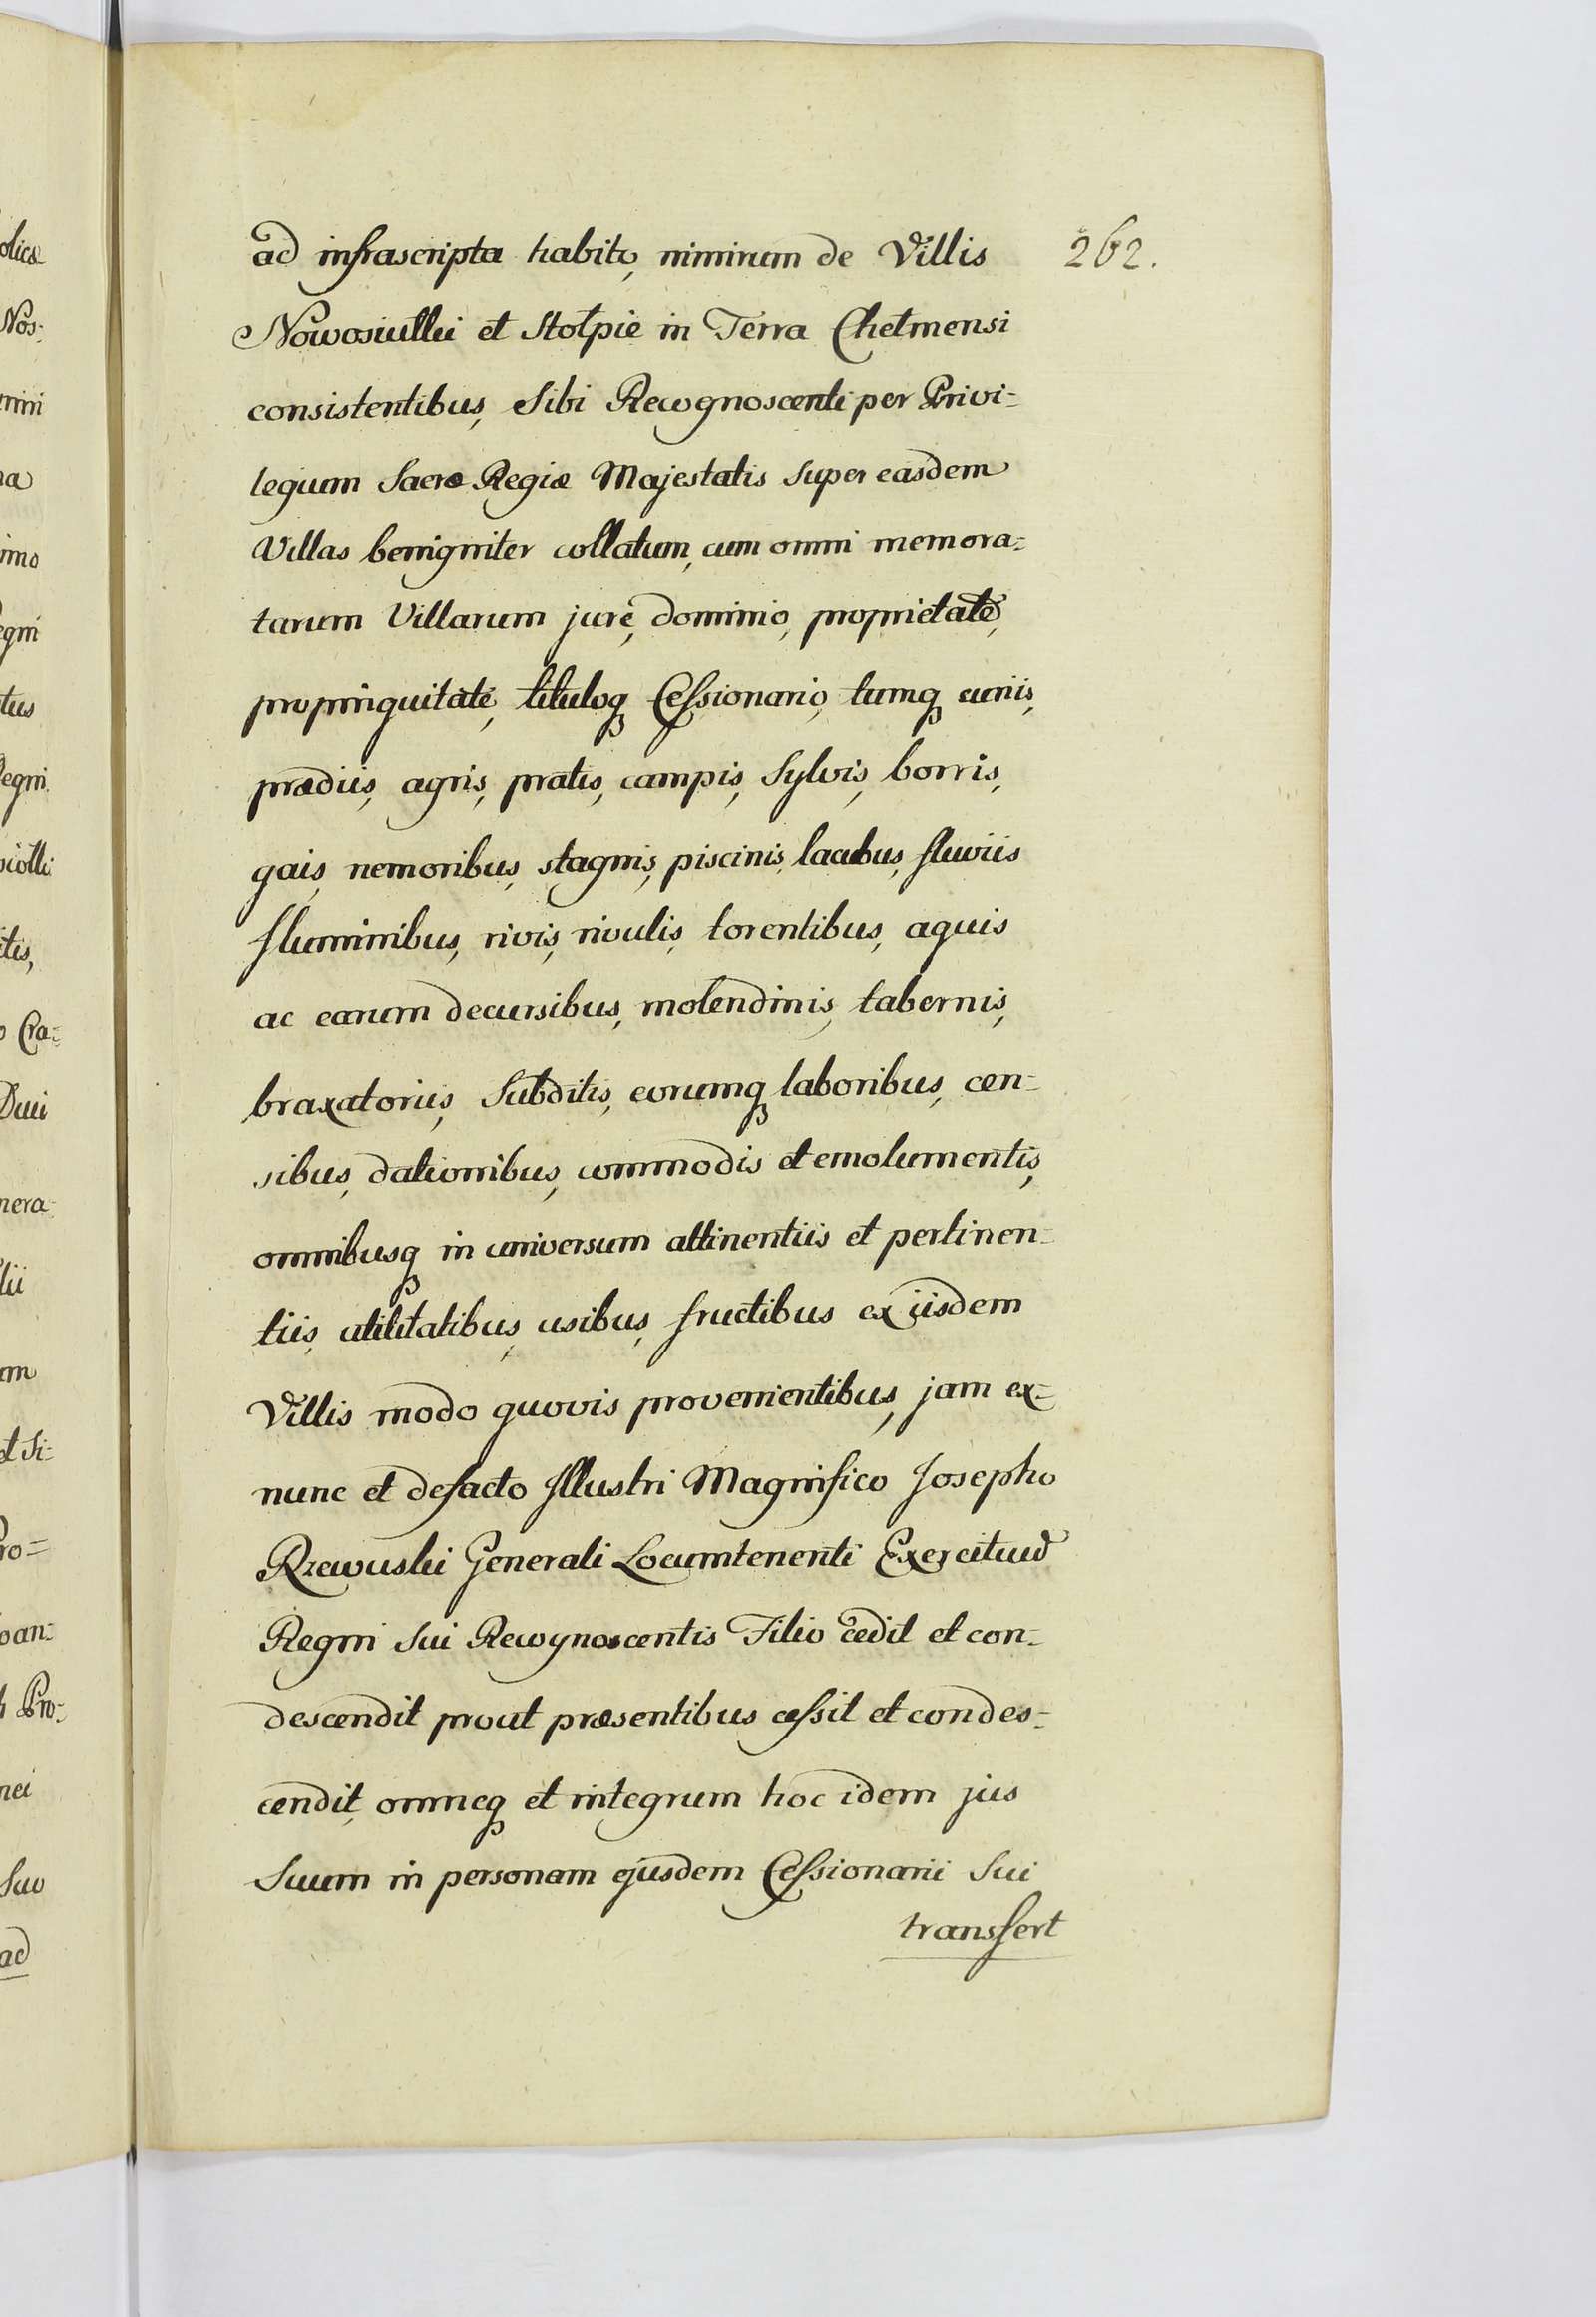 262.
ad infrascripta habito, nimirum de Villis
Nowosiułki et Stołpie in Terra Chełmensi
consistentibus, Sibi Recognoscenti per Privi=
legium Sacræ Regiæ Majestatis super easdem
Villas benigniter collatum, cum omni memora=
tarum Villarum jure, dominio, proprietate,
propinquitate, tituloq Cessionario, tumq curiis,
prædiis, agris, pratis, campis, Sylvis, borris,
gais, nemoribus, stagnis, piscinis, lacubus, fluviis
fluminibus, rivis, rivulis, torentibus, aquis
ac earum decursibus, molendinis, tabernis,
braxatoriis, Subditis, eorumq laboribus, cen=
sibus, dationibus, commodis et emolumentis,
omnibusq in universum attinentiis et pertinen=
tiis, utilitatibus, usibus, fructibus ex iisdem
Villis modo quovis provenientibus, jam ex=
nunc et defacto Illustri Magnifico Josepho
Rzewuski Generali Locumtenenti Exercituus
Regni Sui Recognoscentis Filio cedit et con=
descendit prout præsentibus cessit et condes=
cendit, omneq et integrum hoc idem jus
Suum in personam ejusdem Cessionarii Sui
transfert